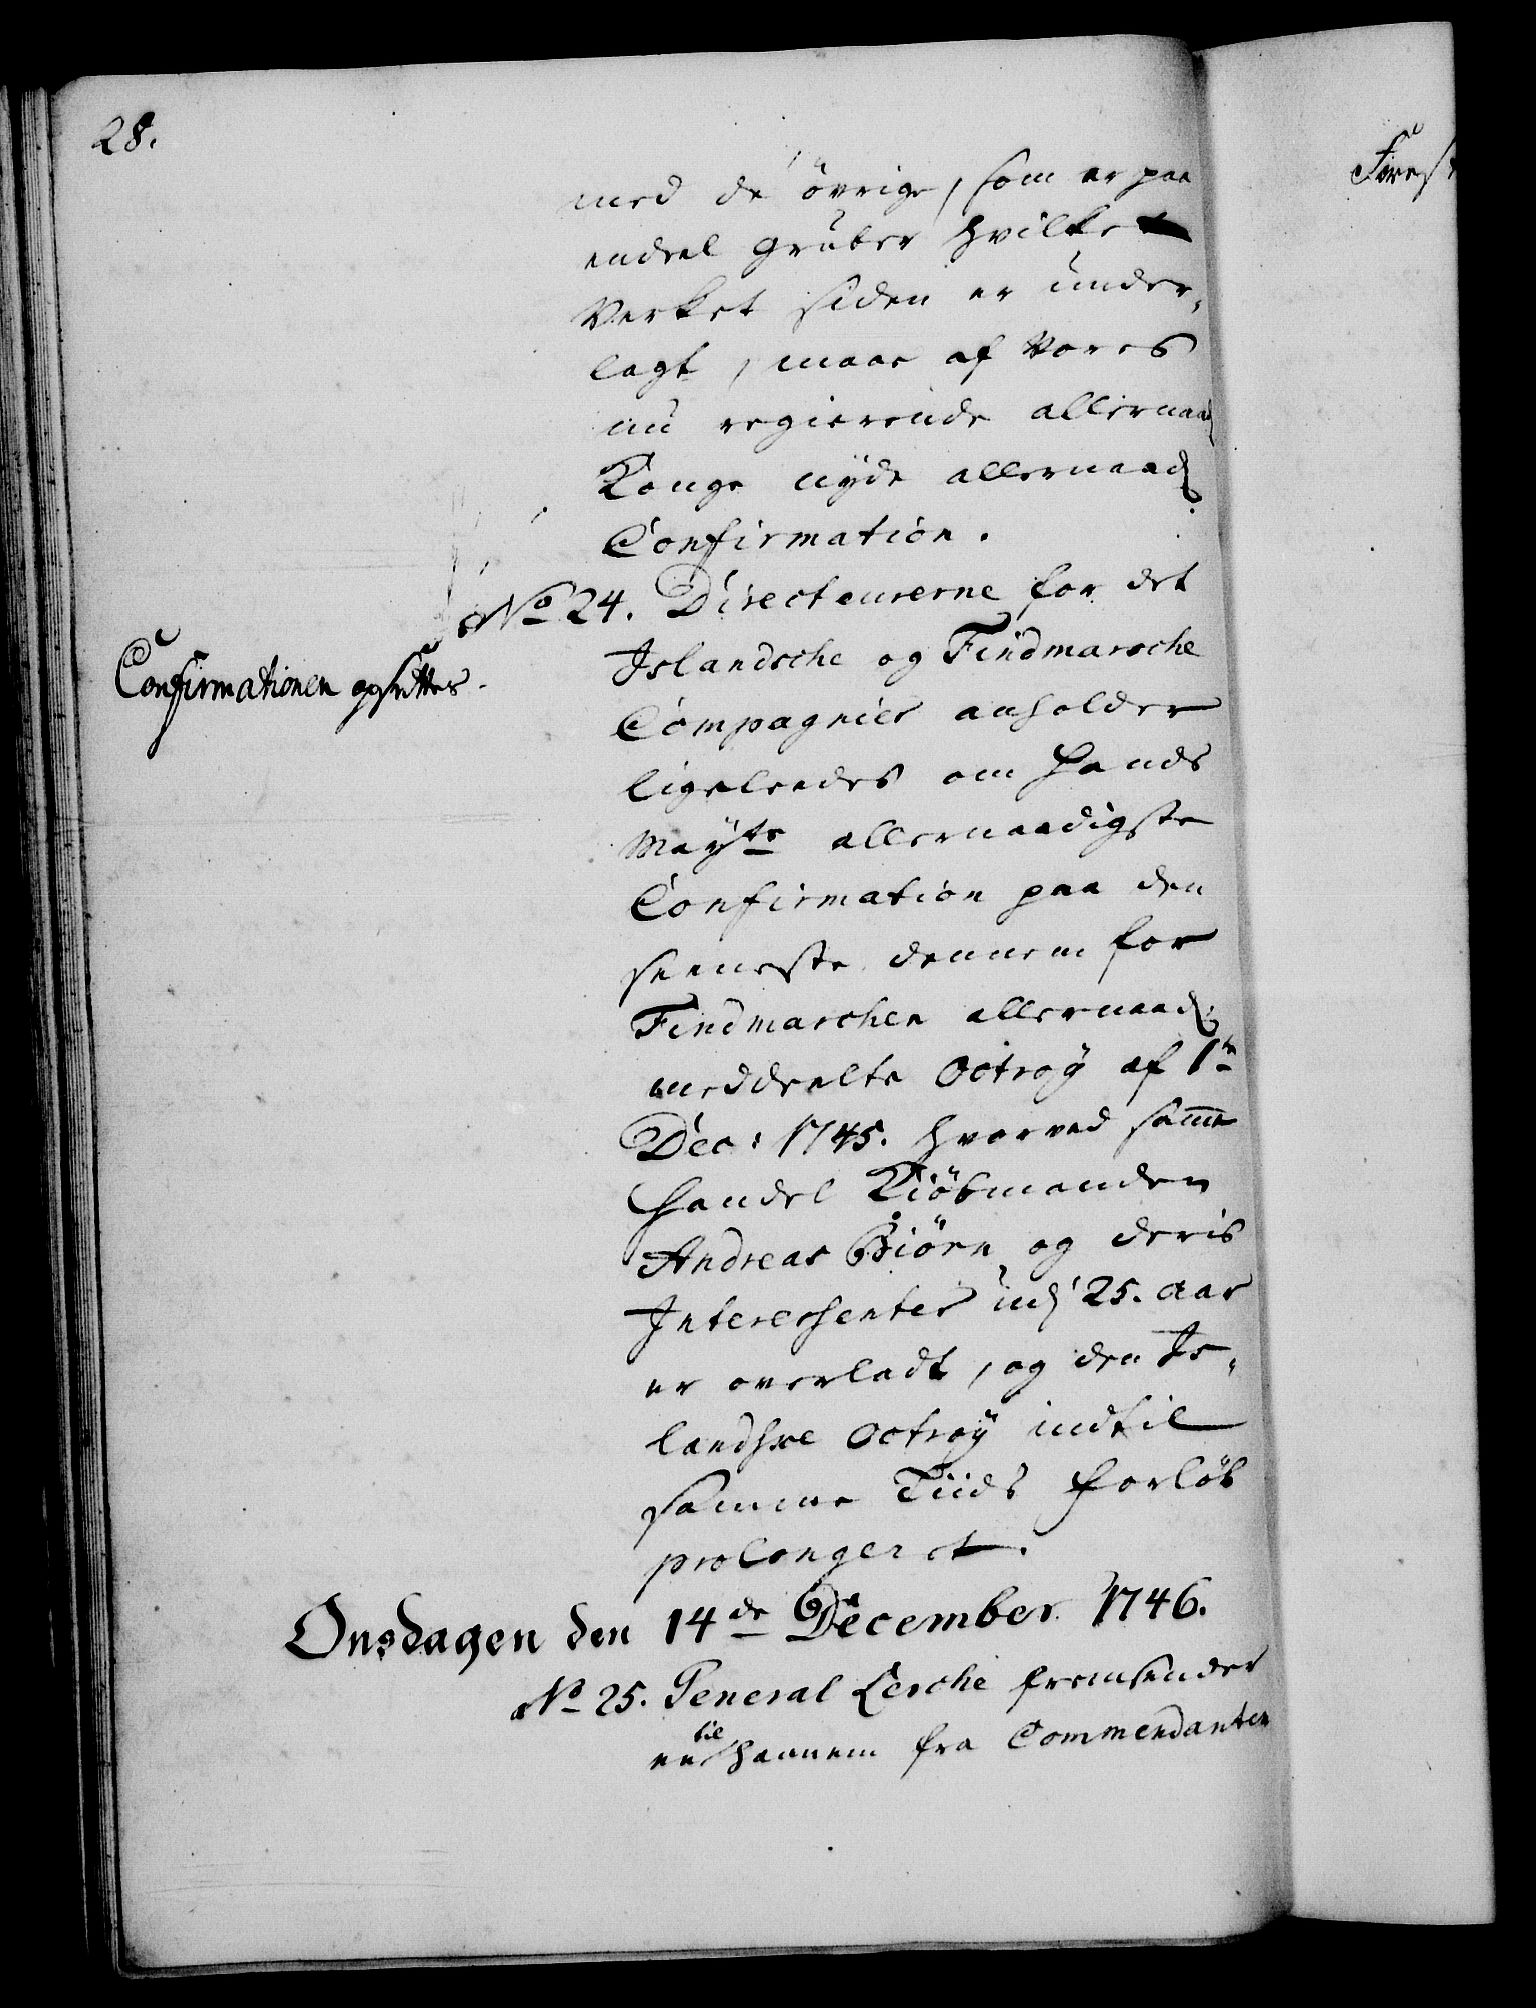 28.
med de övrige, som er paa
endeel Gruber hvilke
Verket siden er under-
lagt, maae af Vores
nu regierende allernaad
Konge nyde allernaad
Confirmation.
No 24. Directeurerne for det
Islandsche og Findmarsche
Confirmationen opsættes.
Compagnies anholder
ligeleedes om Hands
Mayts allernaadigste
Confirmation paa den
seeneste dennem for
Findmarchen allernaad:
meddeelte Octroy af 1te
Dec: 1745. hvorved samme
Handel Kiöbmanden
Andreas Biörn og deris
Interessenter udj 25. aar
er overladt, og den Is-
landske Octroy indtil
samme Tiids Forløb
prolongeret.
Onsdagen den 14de December 1746.
No 25. General Lerche fremsender
en til hannem fra Commendanten